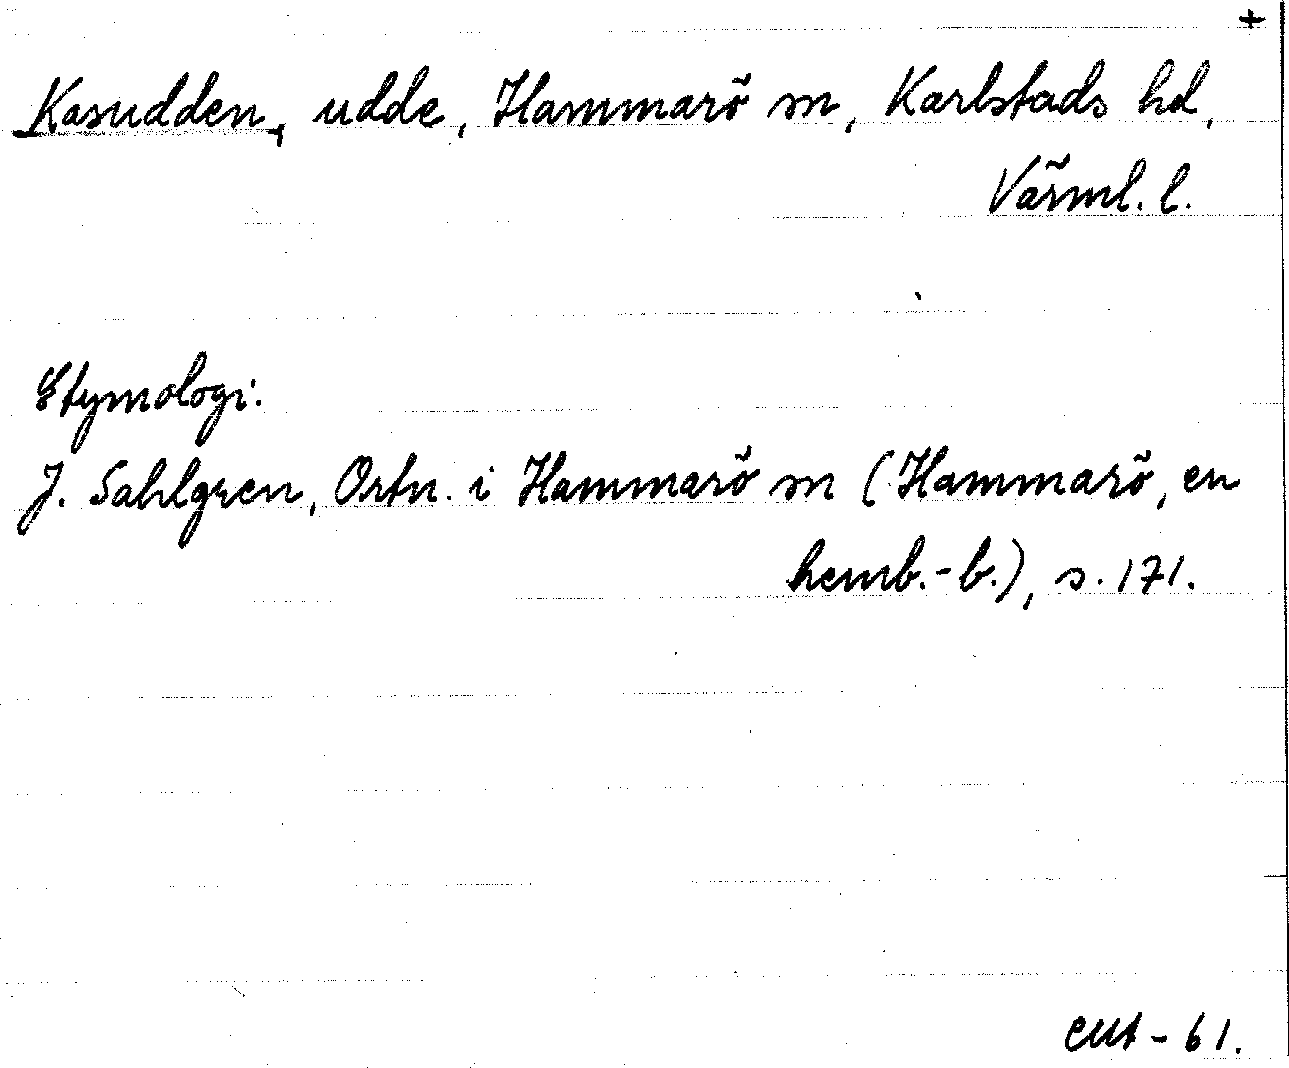 +
Kasudden, udde, Hammarö sn, Karlstads hd,
Värml. l.
Etymologi.
J. Sahlgren, Ortn. i Hammarö sn (Hammarö, en
hemb.-b.), s. 171.
-61.